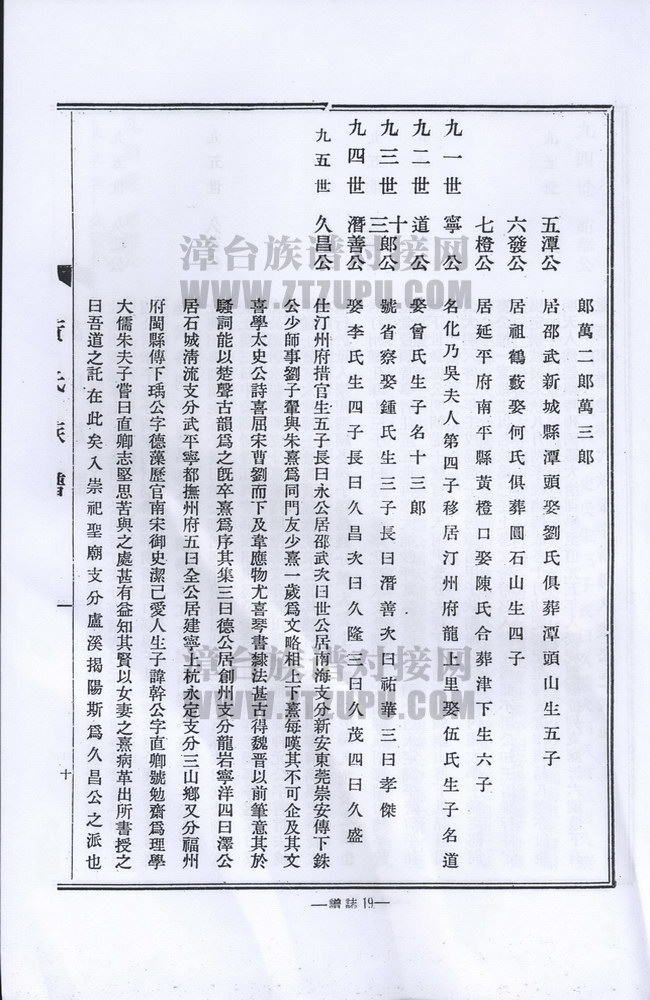 郎萬二郎萬三郎
五潭公 居邵武新城縣潭頭娶劉氏俱葬潭頭山生五子
六發公 居祖鶴藪娶何氏俱葬圓石山生四子
七橙公 居延平府南平縣黃橙口娶陳氏合葬津下生六子
九一世 寧公 名化乃吳夫人第四子移居汀州府龍上里娶伍氏生子名道
九二世 道公 娶曾氏生子名十三郎
九三世 十三郎公 號省察娶鍾氏生三子長曰潛善次曰祐華三曰孝傑
九四世 潛善公 娶李氏生四子長曰久昌次曰久隆三曰久茂四曰久盛
九五世 久昌公 仕汀州府措官生五子長曰永公居邵武次曰世公居南海支分新安東莞崇安傳下銖
公少師事劉子翬與朱熹爲同門友少熹一歲爲文略相上下熹每嘆其不可企及其文
喜學太史公詩喜屈宋曹劉而下及韋應物尤喜琴書隸法甚古得魏晉以前筆意其於
騷詞能以楚聲古韻爲之旣卒熹爲序其集三曰德公居創州支分龍岩寧洋四曰澤公
居石城清流支分武平寧都撫州府五曰全公居建寧上杭永定支分三山鄉又分福州
府閩縣傳下瑀公字德藻歷官南宋御史潔己愛人生子諱幹公字直卿號勉齋爲理學
大儒朱夫子嘗曰直卿志堅思苦與之處甚有益知其賢以女妻之熹病革出所書授之
曰吾道之託在此矣入崇祀聖廟支分盧溪揭陽斯爲久昌公之派也
氏族譜
十
—譜誌19—
漳台族谱对接网
WWW.ZTZUPU.COM
漳台族谱对接网
WWW.ZTZUPU.COM